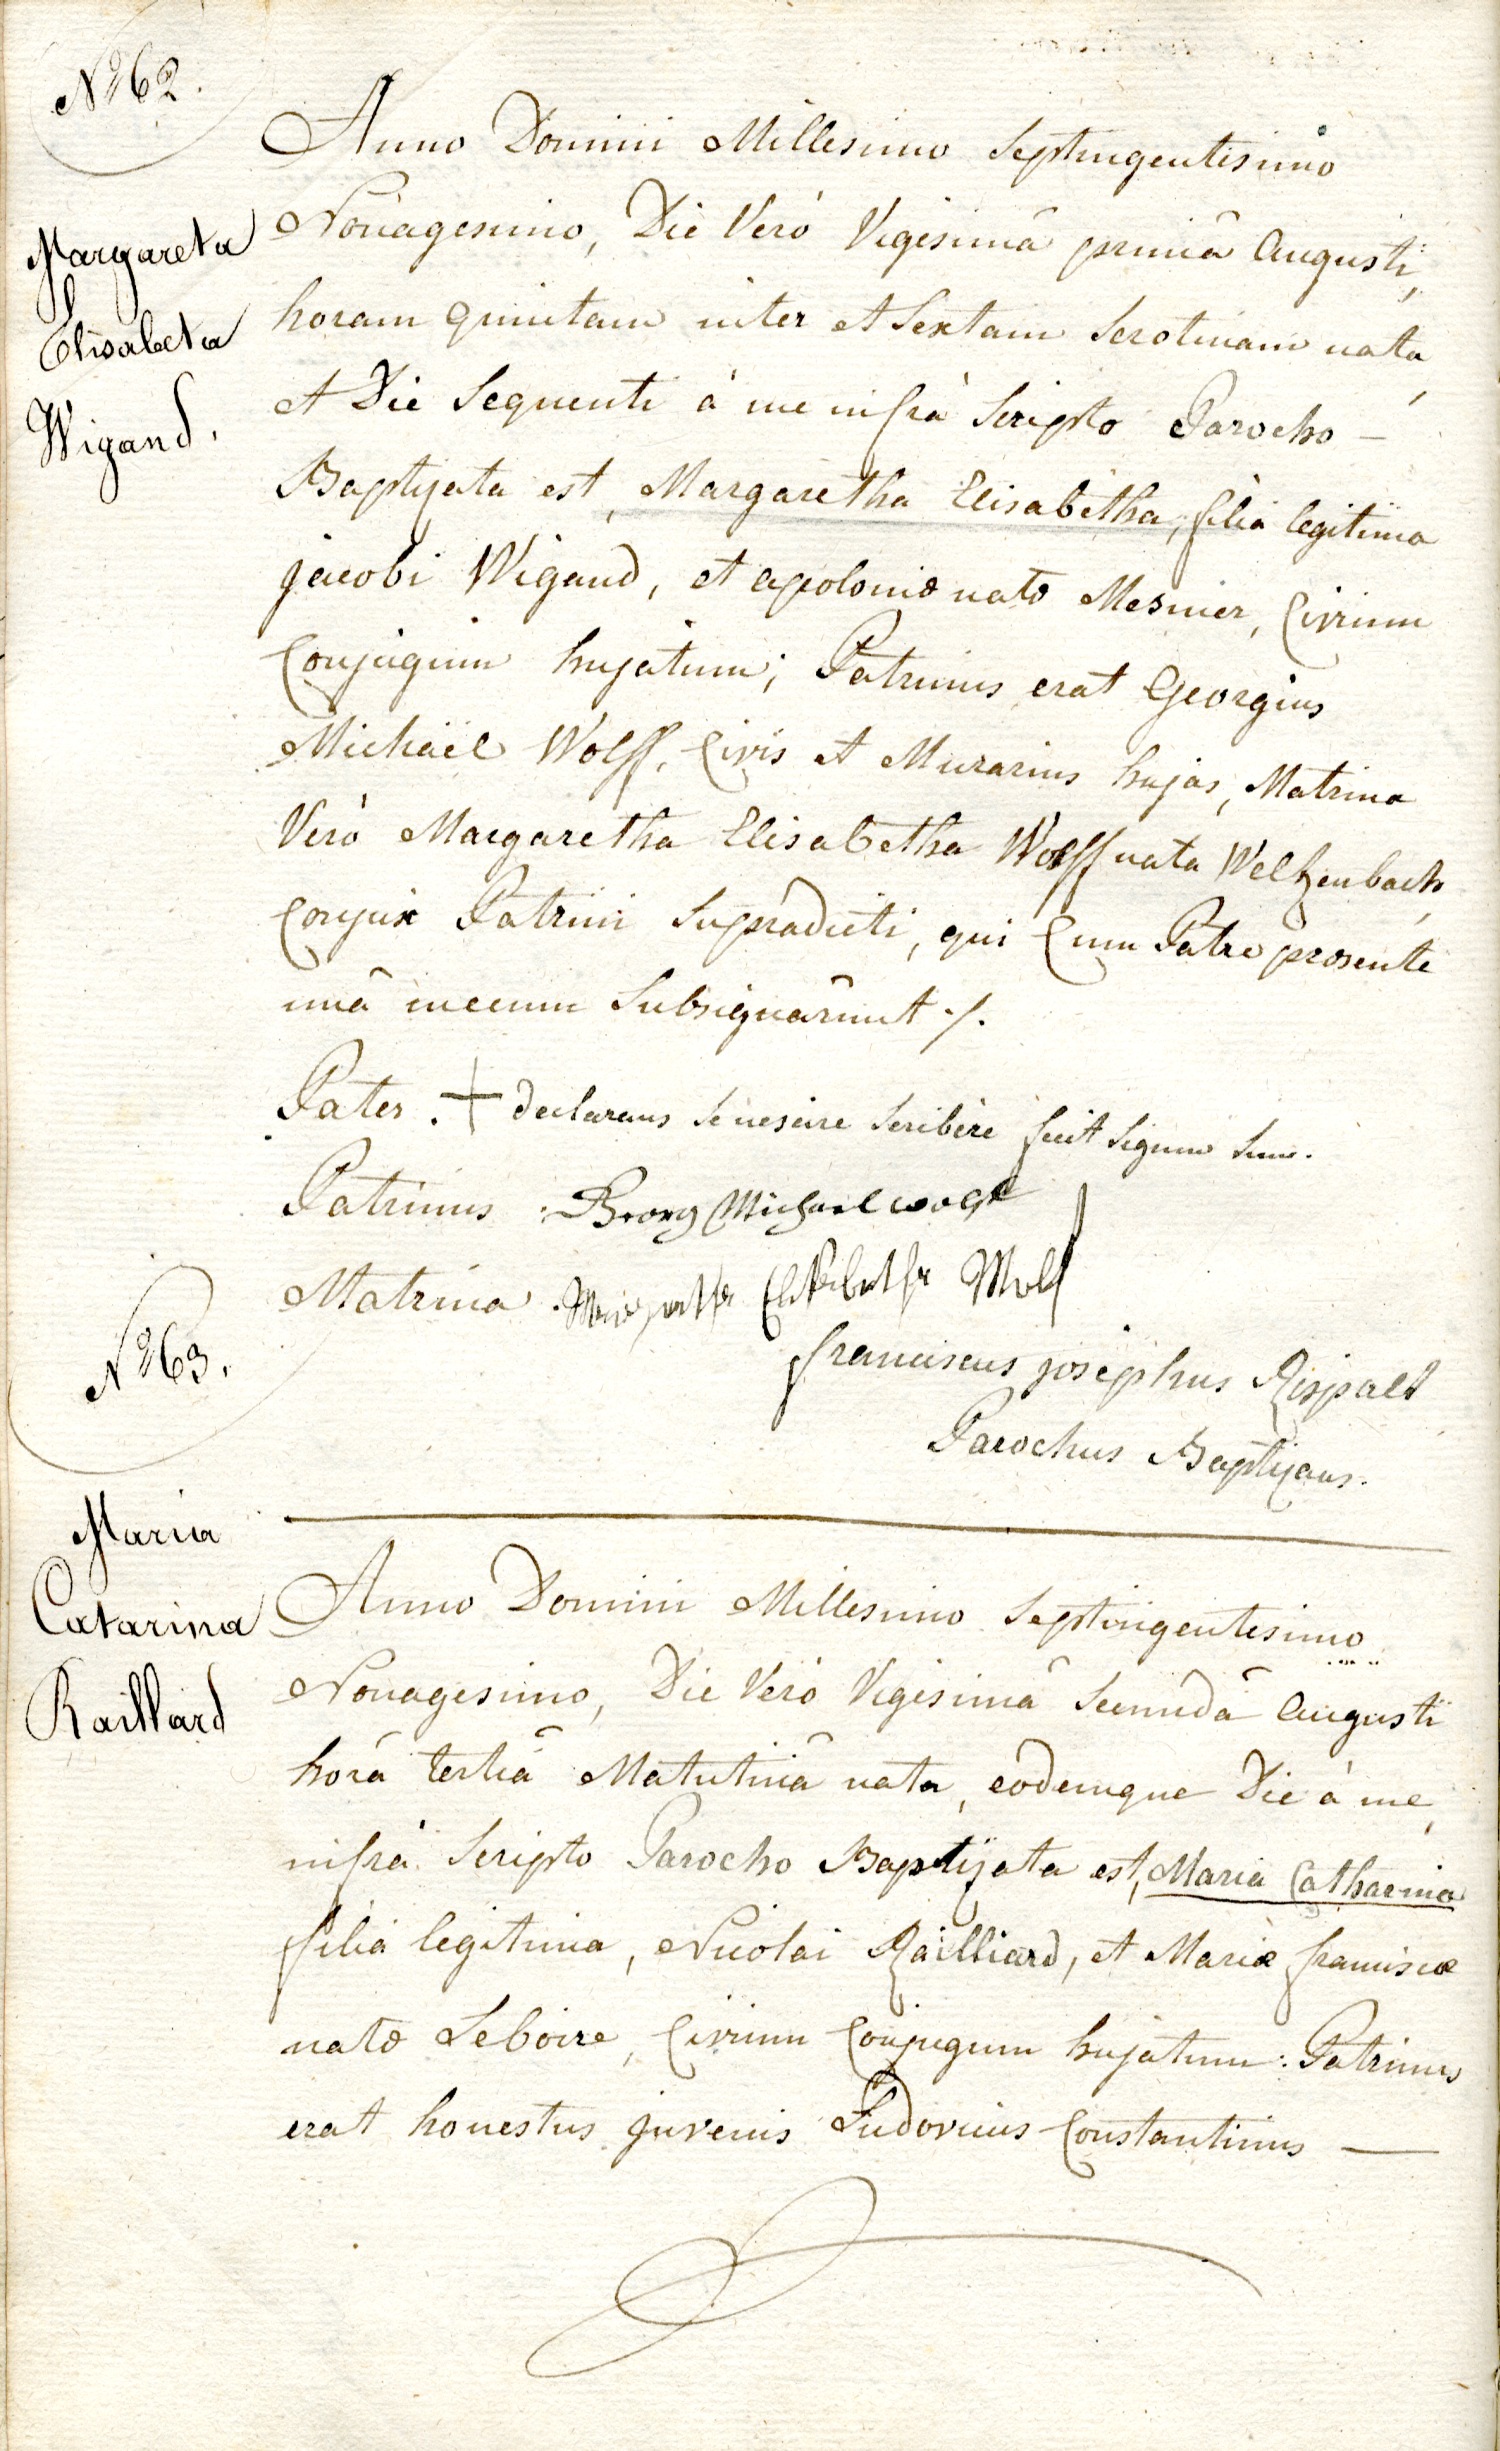 N° 62.
Margareta
Elisabeta
Wigand.
Anno Domini Millesimo Septingentesimo
Nonagesimo, Die Verò Vigesimâ primâ Augusti,
horam quintam inter et Sextam Serotinam nata,
et Die Sequenti à me infrà Scripto Parocho —
Baptizata est, Margaretha Elisabetha, filia legitima
jacobi Wigand, et apoloniæ natæ Mesmer, Civium
Conjugum hujatum; Patrinus erat Georgius
Michaël Wolff, Civis et Murarius hujas, Matrina
Verò Margaretha Elisabetha Wolff nata Welzenbach,
Conjux Patrini Supradicti, qui Cum Patre præsente
unâ mecum Subsignârunt ./.
Pater . + declarans se nescire Scribere fecit Signum Suum.
Patrinus : Georg Michael wolff
Matrina . Margaretha Elisabetha Wolf
franciscus josephus Rispalt
Parochus Baptizans.
N° 63.
Maria
Catarina
Raillard
Anno Domini Millesimo Septingentesimo
Nonagesimo, Die Verò Vigesimâ Secundâ Augusti
horâ tertiâ Matutinâ nata, eodemque Die à me,
infrà Scripto Parocho Baptizata est, Maria Catharina
filia legitima, Nicolai Railliard, et Mariæ franciscæ
natæ Leboire, Civium Conjugum hujatum: Patrinus
erat honestus juvenis Ludovicus Constantinus —